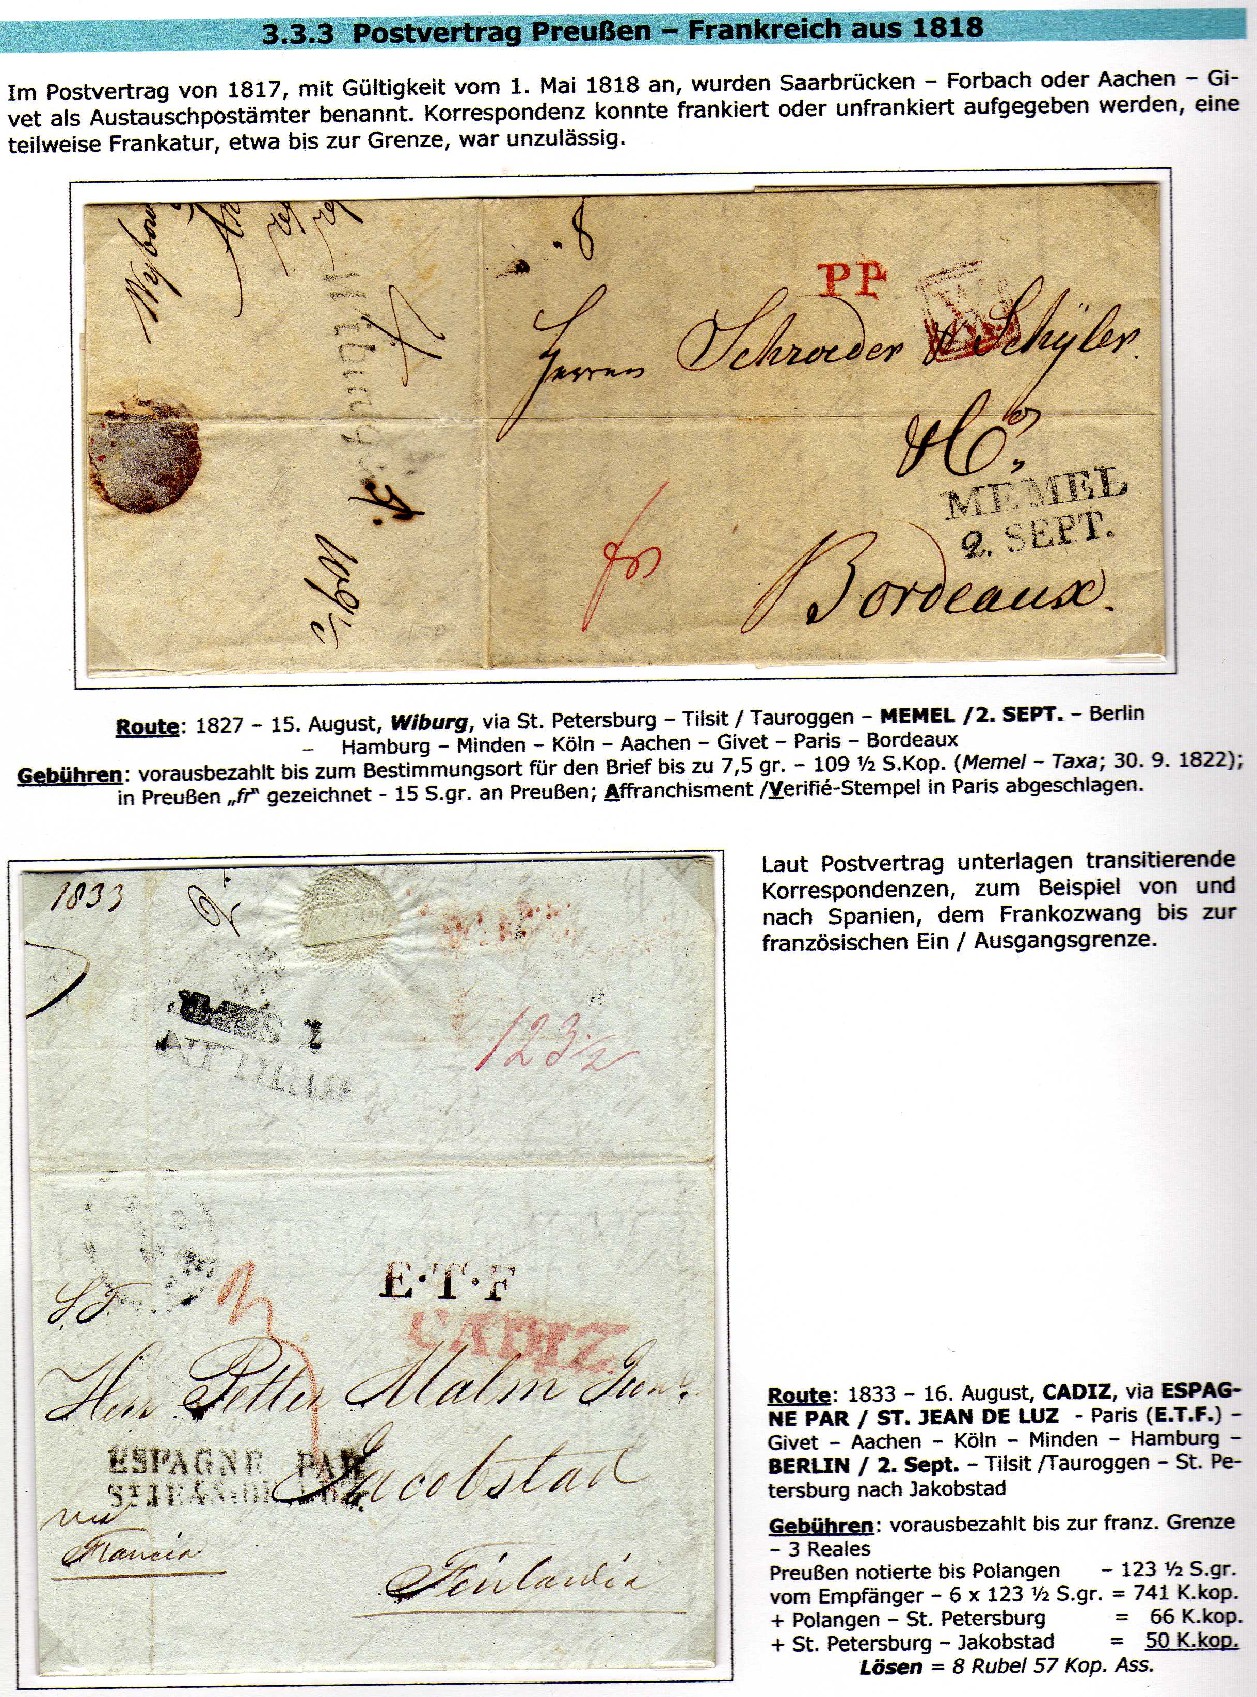 3.3.3 Postvertrag Preußen – Frankreich aus 1818
Im Postvertrag von 1817, mit Gültigkeit vom 1. Mai 1818 an, wurden Saarbrücken – Forbach oder Aachen – Gi-
vet als Austauschpostämter benannt. Korrespondenz konnte frankiert oder unfrankiert aufgegeben werden, eine
teilweise Frankatur, etwa bis zur Grenze, war unzulässig.
PP
Herren Schroeder & Schÿler
&Co.
MEMEL
2. SEPT.
Bordeaux.
Route: 1827 – 15. August, Wiburg, via St. Petersburg – Tilsit / Tauroggen – MEMEL /2. SEPT. – Berlin
– Hamburg – Minden – Köln – Aachen – Givet – Paris – Bordeaux
Gebühren: vorausbezahlt bis zum Bestimmungsort für den Brief bis zu 7,5 gr. – 109 ½ S.Kop. (Memel – Taxa; 30. 9. 1822);
in Preußen „fr“ gezeichnet - 15 S.gr. an Preußen; Affranchisment /Verifié-Stempel in Paris abgeschlagen.
Laut Postvertrag unterlagen transitierende
Korrespondenzen, zum Beispiel von und
nach Spanien, dem Frankozwang bis zur
französischen Ein / Ausgangsgrenze.
1833
123½
E·T·F
CADIZ
Herr Petter Malm Jun.
ESPAGNE PAR
Jacobstad
via
Francia
Finlandia
Route: 1833 – 16. August, CADIZ, via ESPAG-
NE PAR / ST. JEAN DE LUZ - Paris (E.T.F.) –
Givet – Aachen – Köln – Minden – Hamburg –
BERLIN / 2. Sept. – Tilsit /Tauroggen – St. Pe-
tersburg nach Jakobstad
Gebühren: vorausbezahlt bis zur franz. Grenze
– 3 Reales
Preußen notierte bis Polangen – 123 ½ S.gr.
vom Empfänger – 6 x 123 ½ S.gr. = 741 K.kop.
+ Polangen – St. Petersburg = 66 K.kop.
+ St. Petersburg – Jakobstad = 50 K.kop.
Lösen = 8 Rubel 57 Kop. Ass.